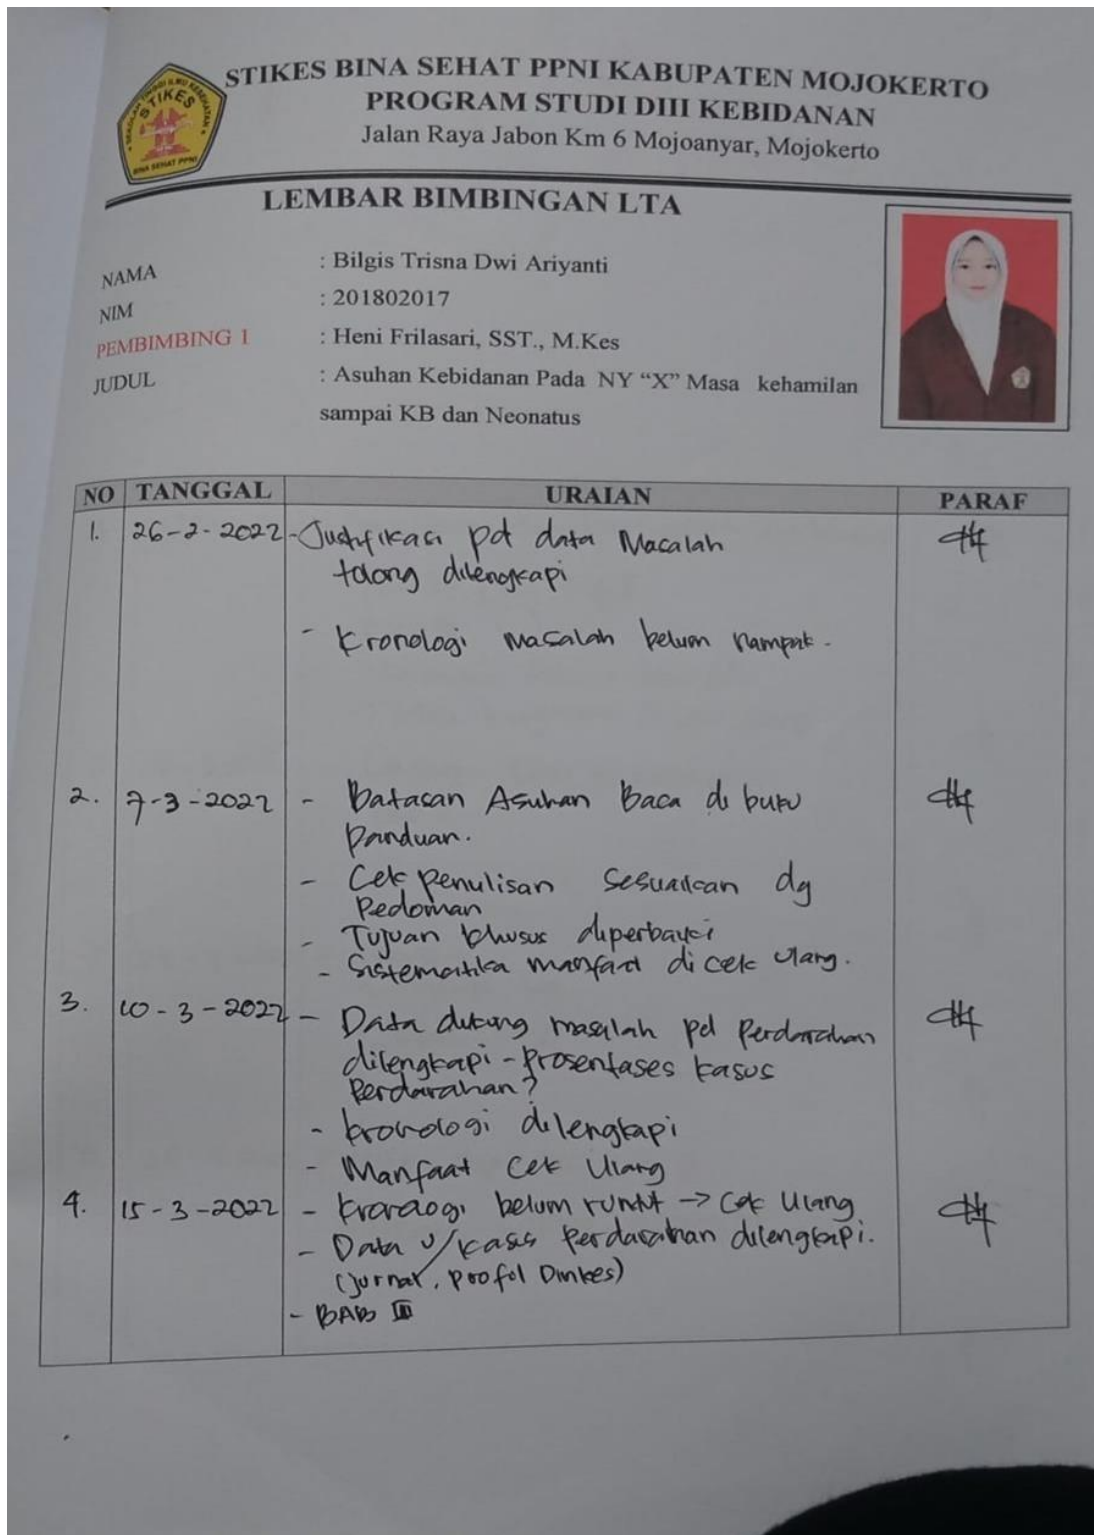 STIKES BINA SEHAT PPNI KABUPATEN MOJOKERTO
PROGRAM STUDI DIII KEBIDANAN
Jalan Raya Jabon Km 6 Mojoanyar, Mojokerto
SEKOLAH TINGGI ILMU KESEHATAN
STIKES
BINA SEHAT PPNI
LEMBAR BIMBINGAN LTA
NAMA : Bilgis Trisna Dwi Ariyanti
NIM : 201802017
PEMBIMBING 1 : Heni Frilasari, SST., M.Kes
JUDUL : Asuhan Kebidanan Pada NY “X” Masa kehamilan
sampai KB dan Neonatus
NO TANGGAL URAIAN PARAF
1. 26-2-2022 - Justifikasi pd data Masalah
tolong dilengkapi
- Kronologi masalah belum nampak.
2. 7-3-2022 - Batasan Asuhan Baca di buku
panduan.
- Cek penulisan sesuaikan dg
Pedoman
- Tujuan khusus diperbayci
- Sistematika manfaat di cek ulang.
3. 10-3-2022 - Data dukung masalah pd perdarahan
dilengkapi - prosentases kasus
Perdarahan?
- kronologi dilengkapi
- Manfaat Cek Ulang
4. 15-3-2022 - Kronologi belum runtut → Cek Ulang
- Data u/kasus Perdarahan dilengkapi.
(Jurnal, profol Dinkes)
- BAB III